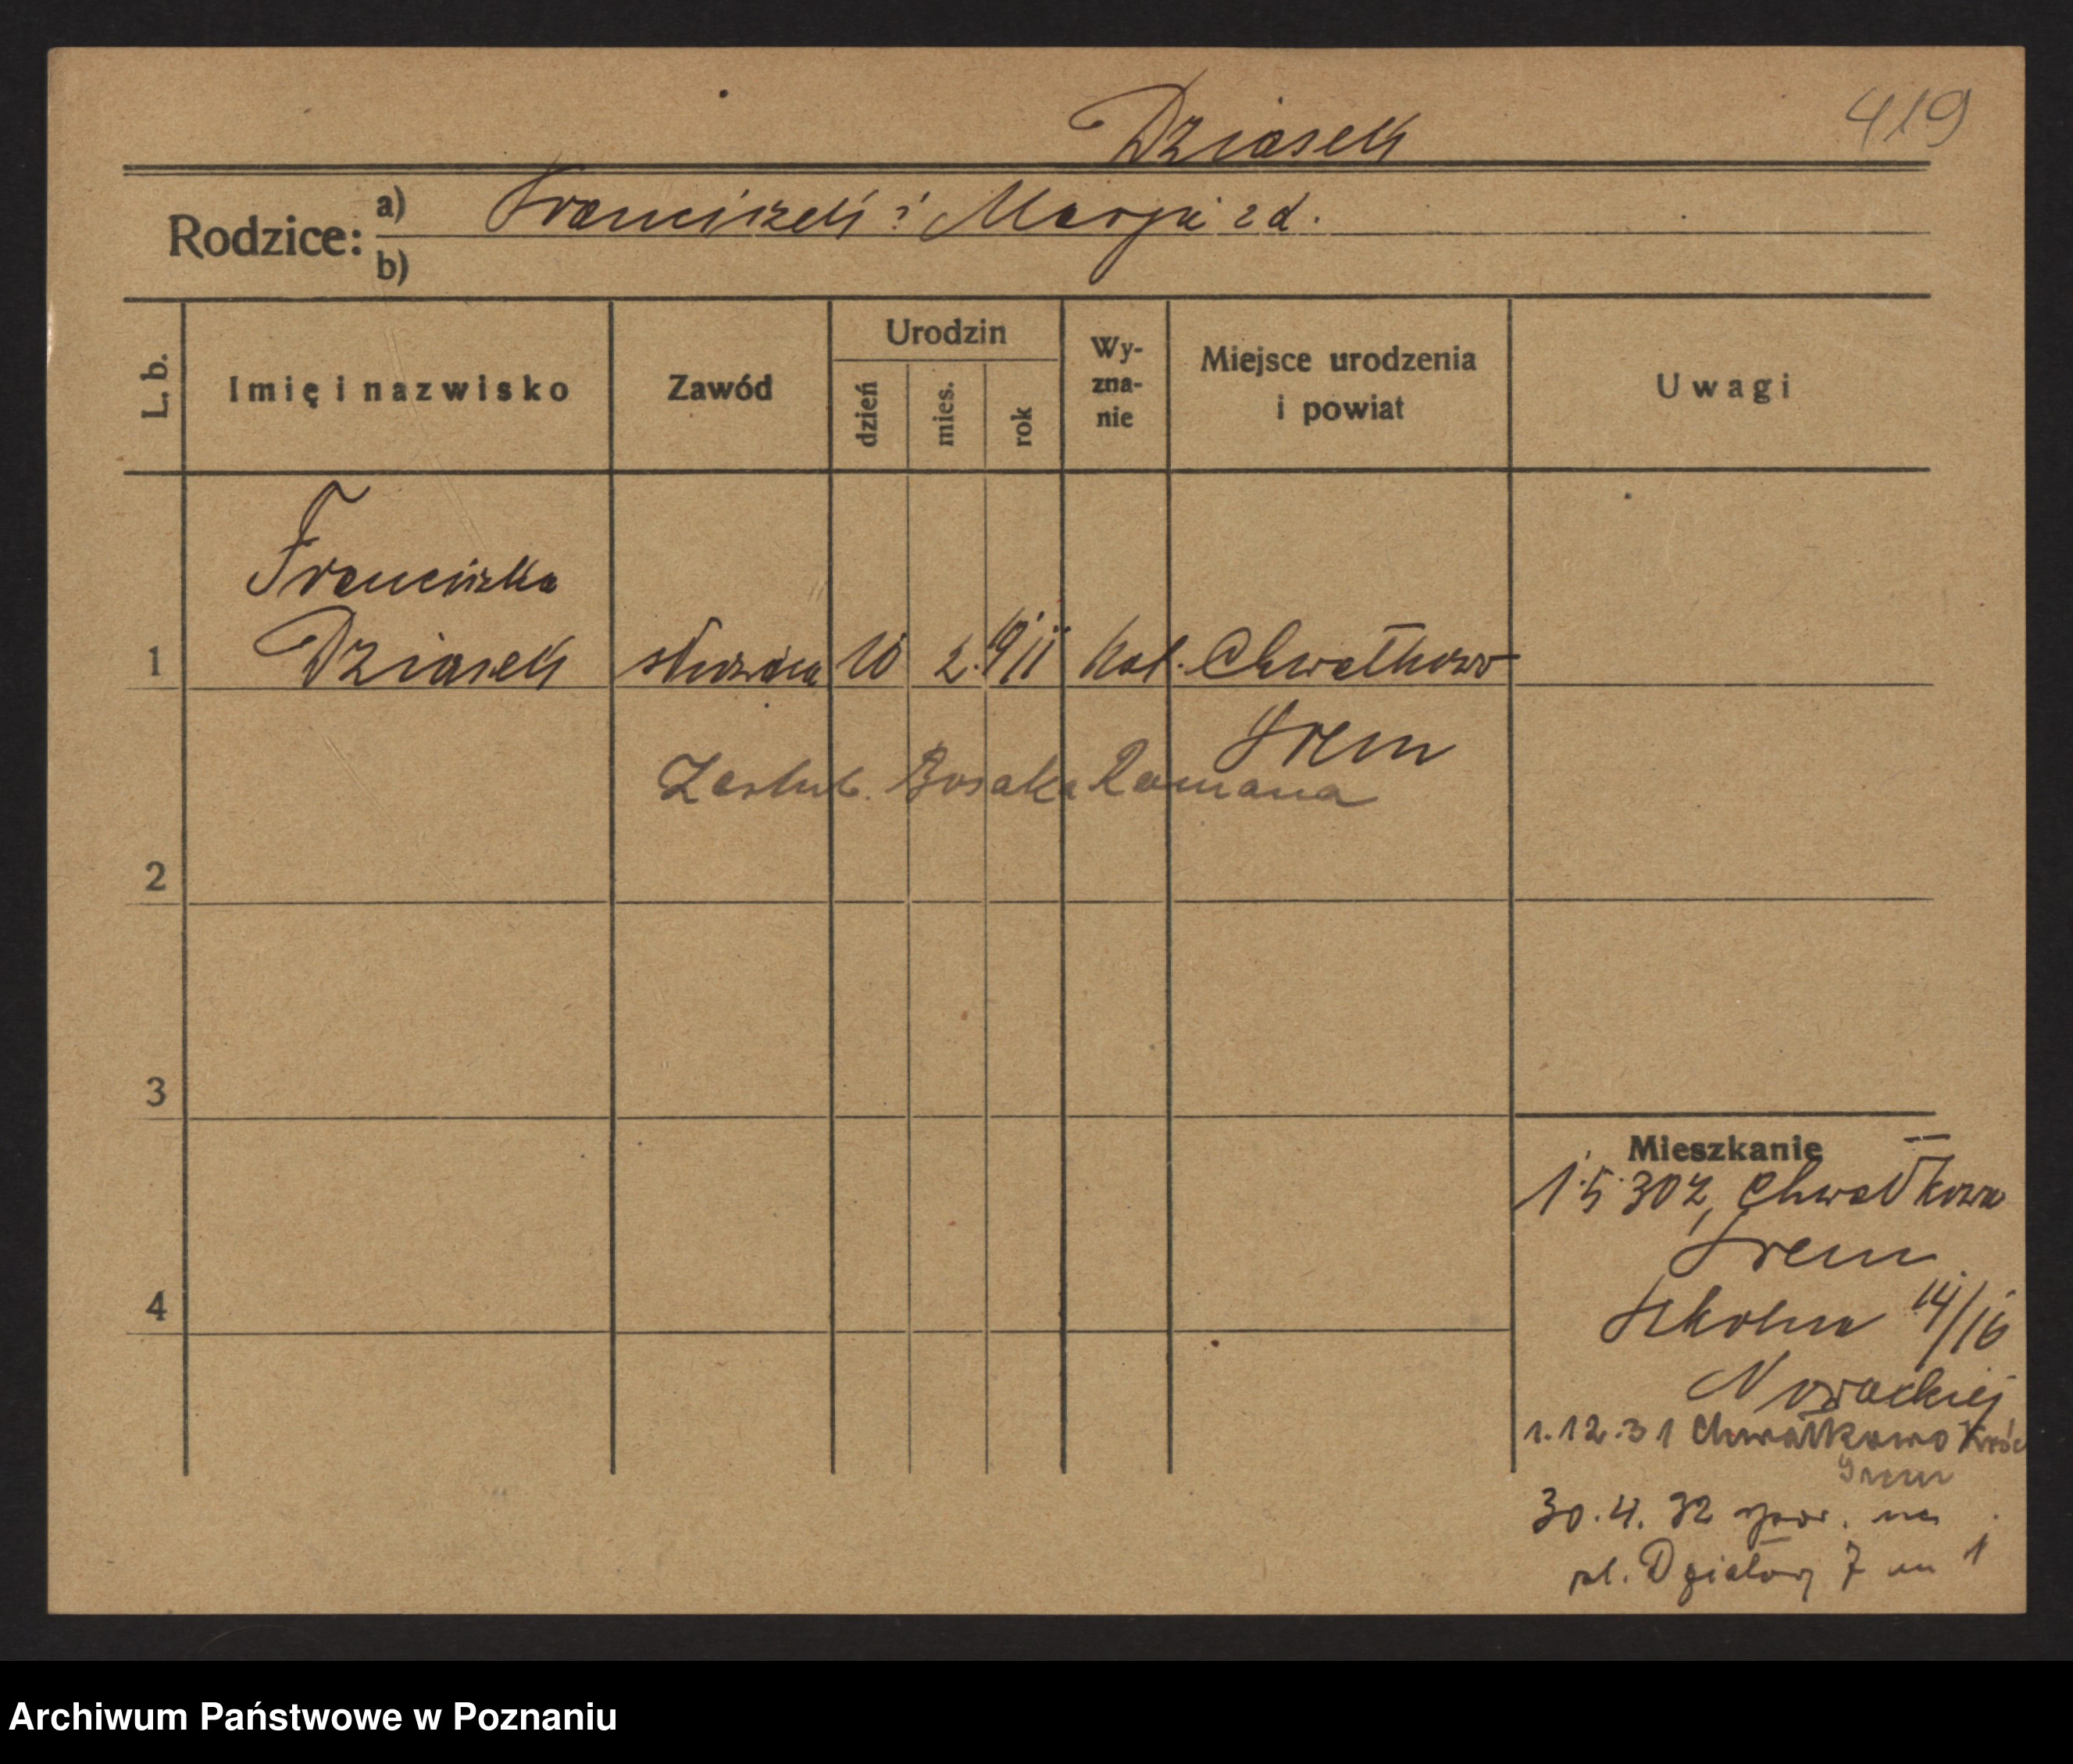 419
Dziasek
Rodzice: a) Franciszek i Marja zd.
b)
L. b. Imię i nazwisko Zawód Urodzin dzień mies. rok Wy-zna-nie Miejsce urodzenia i powiat Uwagi
Franciszka
1 Dziasek służąca 10 2. 1911 kat. Chwałkowo
Śrem
Zaślub. Bosaka Romana
2
3
Mieszkanie
1.5.30 z Chwałkowa
Śrem
4 Szkolna 14/16
Nowackiej
1.12.31 Chwałkowo
Śrem
30.4.32 na
pl. Działowy 7 m 1
Archiwum Państwowe w Poznaniu